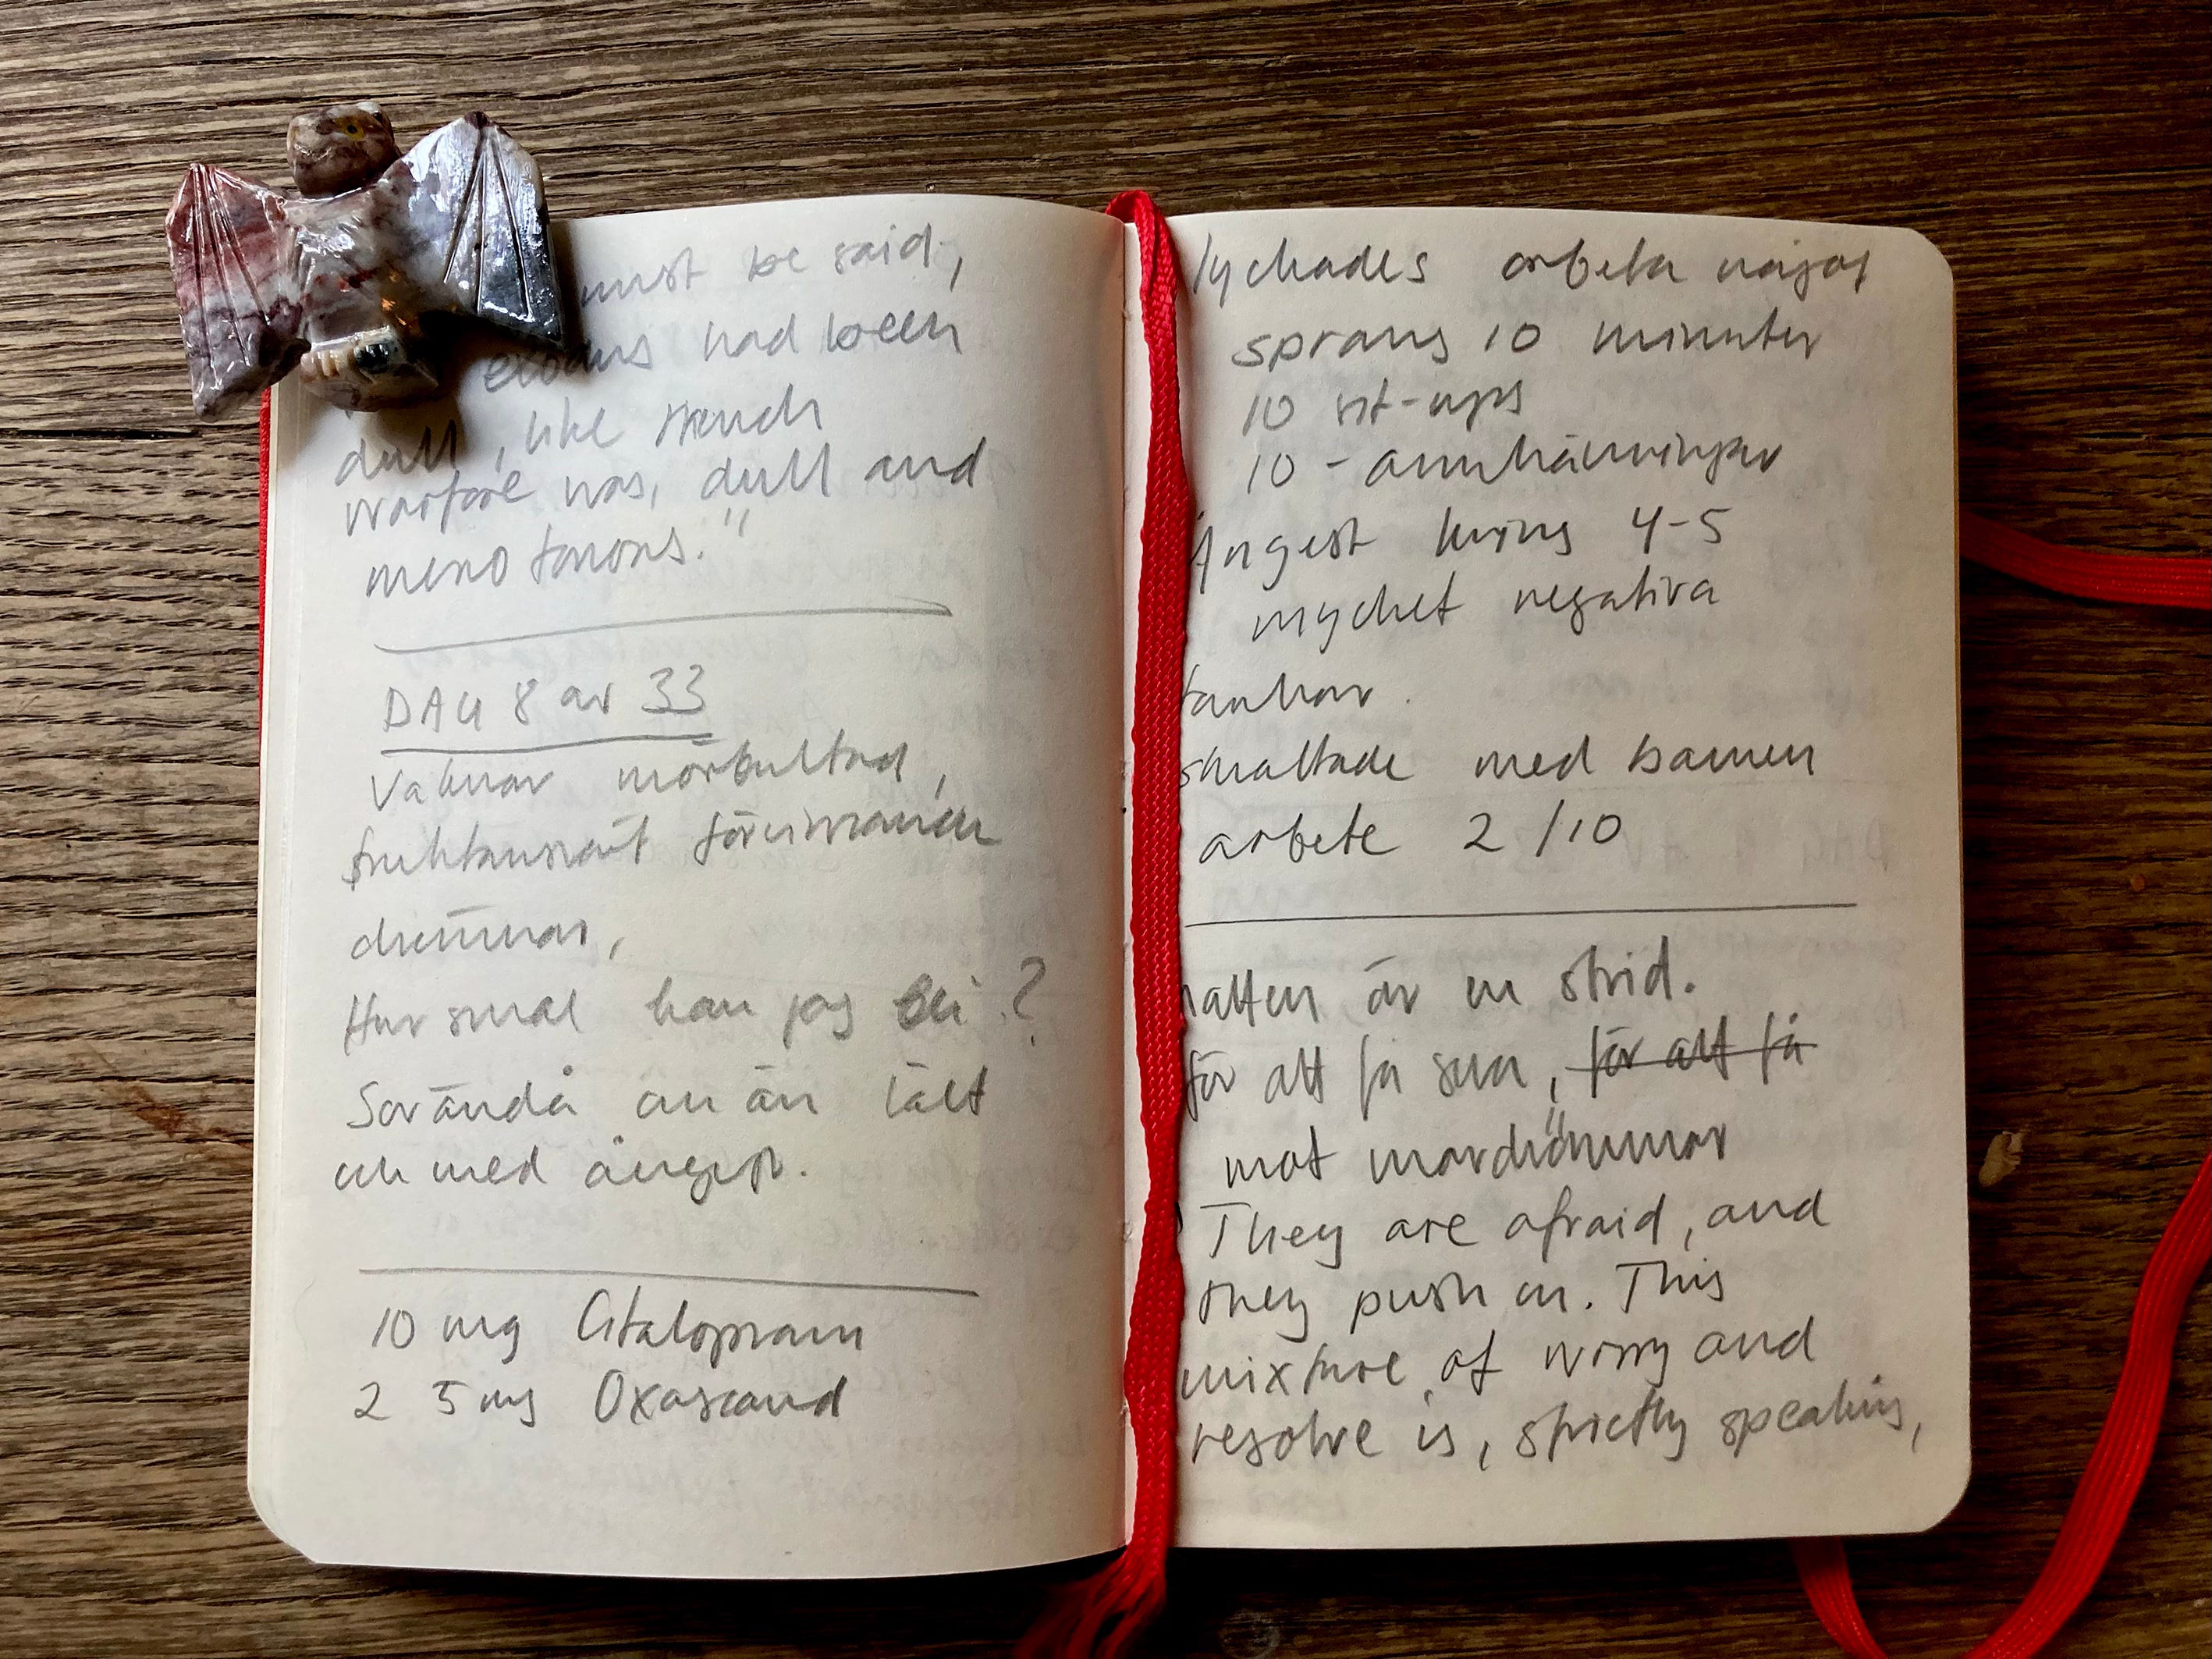 must be said,
exodus had been
dull, like trench
warfare was, dull and
monotonous."
DAG 8 av 33
Vaknar mörbultad,
fruktansvärt förvirrande
drömmar,
Hur smal kan jag bli?
Sover ändå än än
och med ångest.
10 mg Citalopram
2 5 mg Oxascand
lyckades arbeta något
sprang 10 minuter
10 sit-ups
10 - armhävningar
Ångest kring 4-5
mycket negativa
tankar.
skrattade med barnen
arbete 2/10
natten är en strid.
för att få sova, för att få
mot mardrömmar
They are afraid, and
they push on. This
mixture of worry and
resolve is, strictly speaking,